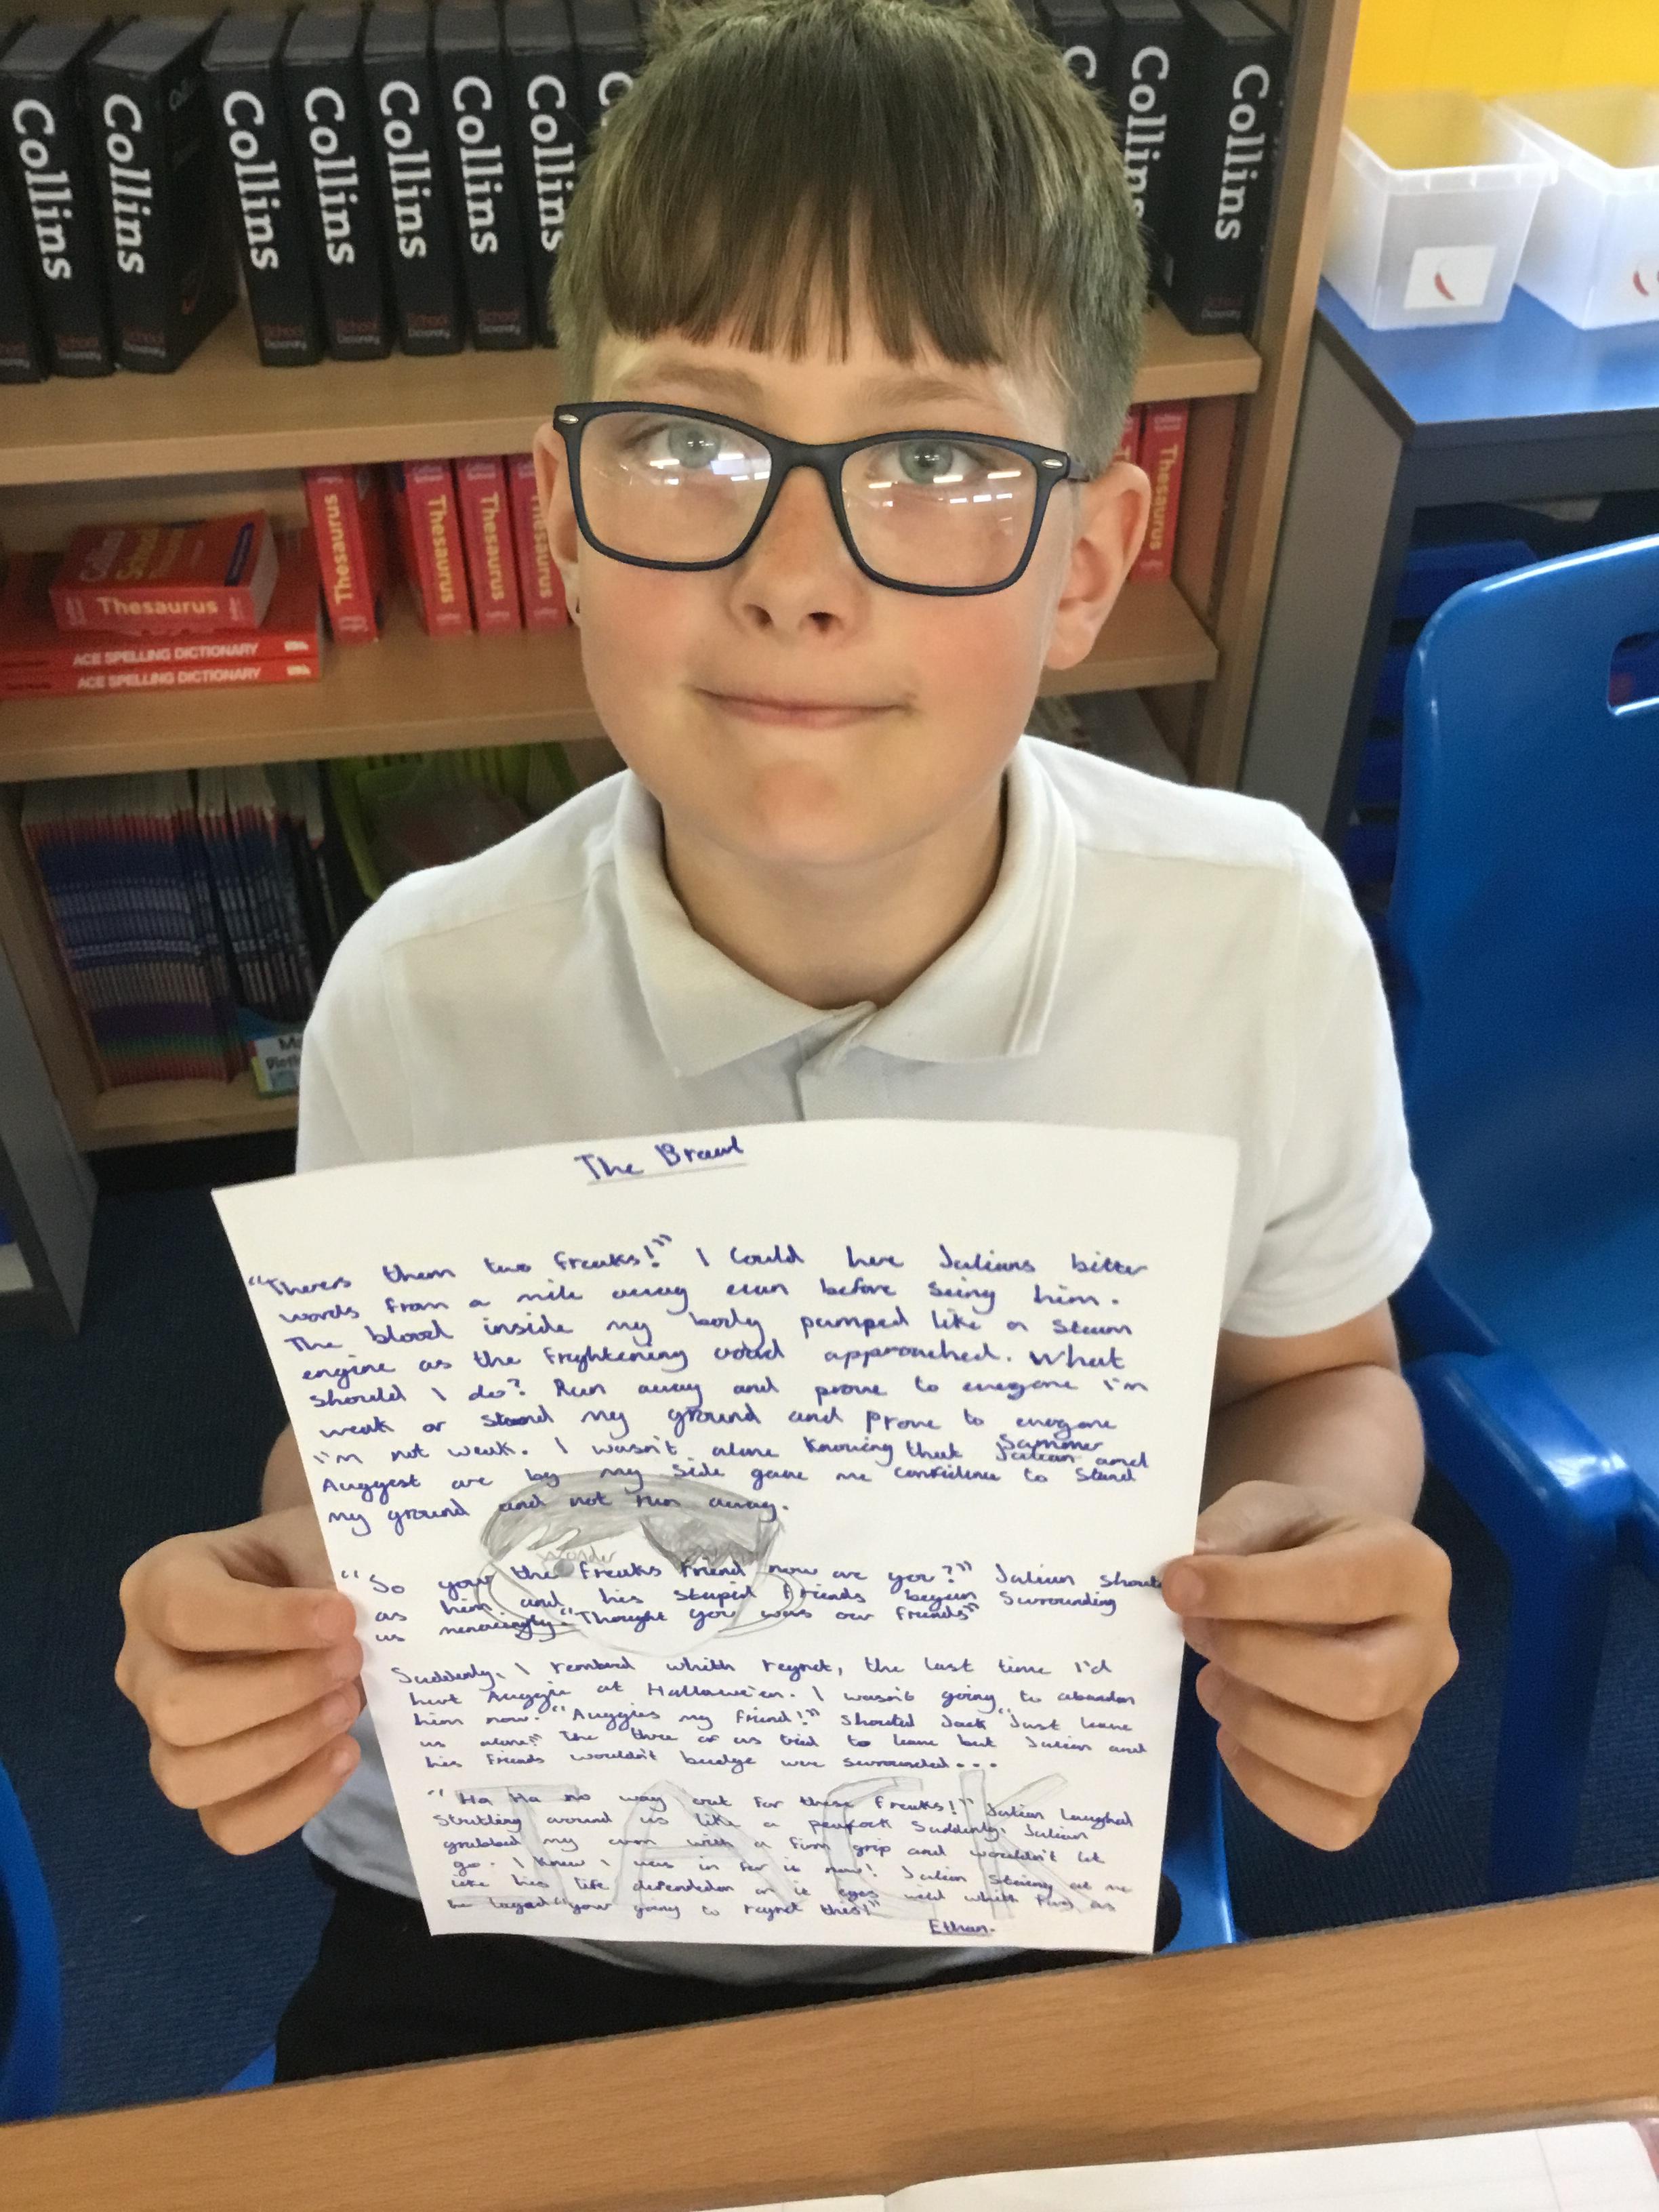 Collins
Collins
Collins
Collins
Collins
Collins
Collins
Collins
Collins
School
Dictionary
School
Dictionary
School
Dictionary
Thesaurus
Thesaurus
Thesaurus
Thesaurus
Thesaurus
Collins
School
Thesaurus
ACE SPELLING DICTIONARY
ACE SPELLING DICTIONARY
The Brawl
"Theres them two freaks!" I Could here Julians bitter
words from a mile away even before seing him.
The blood inside my body pumped like a steam
engine as the frightening approached. What
should I do? Run away and prove to everyone I'm
weak or stand my ground and prove to everyone
I'm not weak. I wasn't alone knowing that Summer and
Auggest are by my side gave me confidence to stand
my ground and not run away.
Wonder
"So your the freaks friend now are you?" Julian shouted
as him and his stupid friends began Surrounding
us menacingly. "Thought you was our friends"
Suddenly, I rembred whith regret, the last time I'd
hurt Auggie at Hallowe'en. I wasn't going to abandon
him now. "Auggies my friend!" shouted Jack "Just leave
us alone!" The three of us tried to leave but Julian and
his friends wouldn't budge were surrounded...
"Ha Ha no way out for these freaks!" Julian laughed
Strutling around us like a peacock Suddenly, Julian
grabbed my arm with a firm grip and wouldn't let
go. I knew I was in for it now! Julian Staring at me
like his life depended on it eyes wild whith as
he "your going to regret this!"
JACK
Ethan.